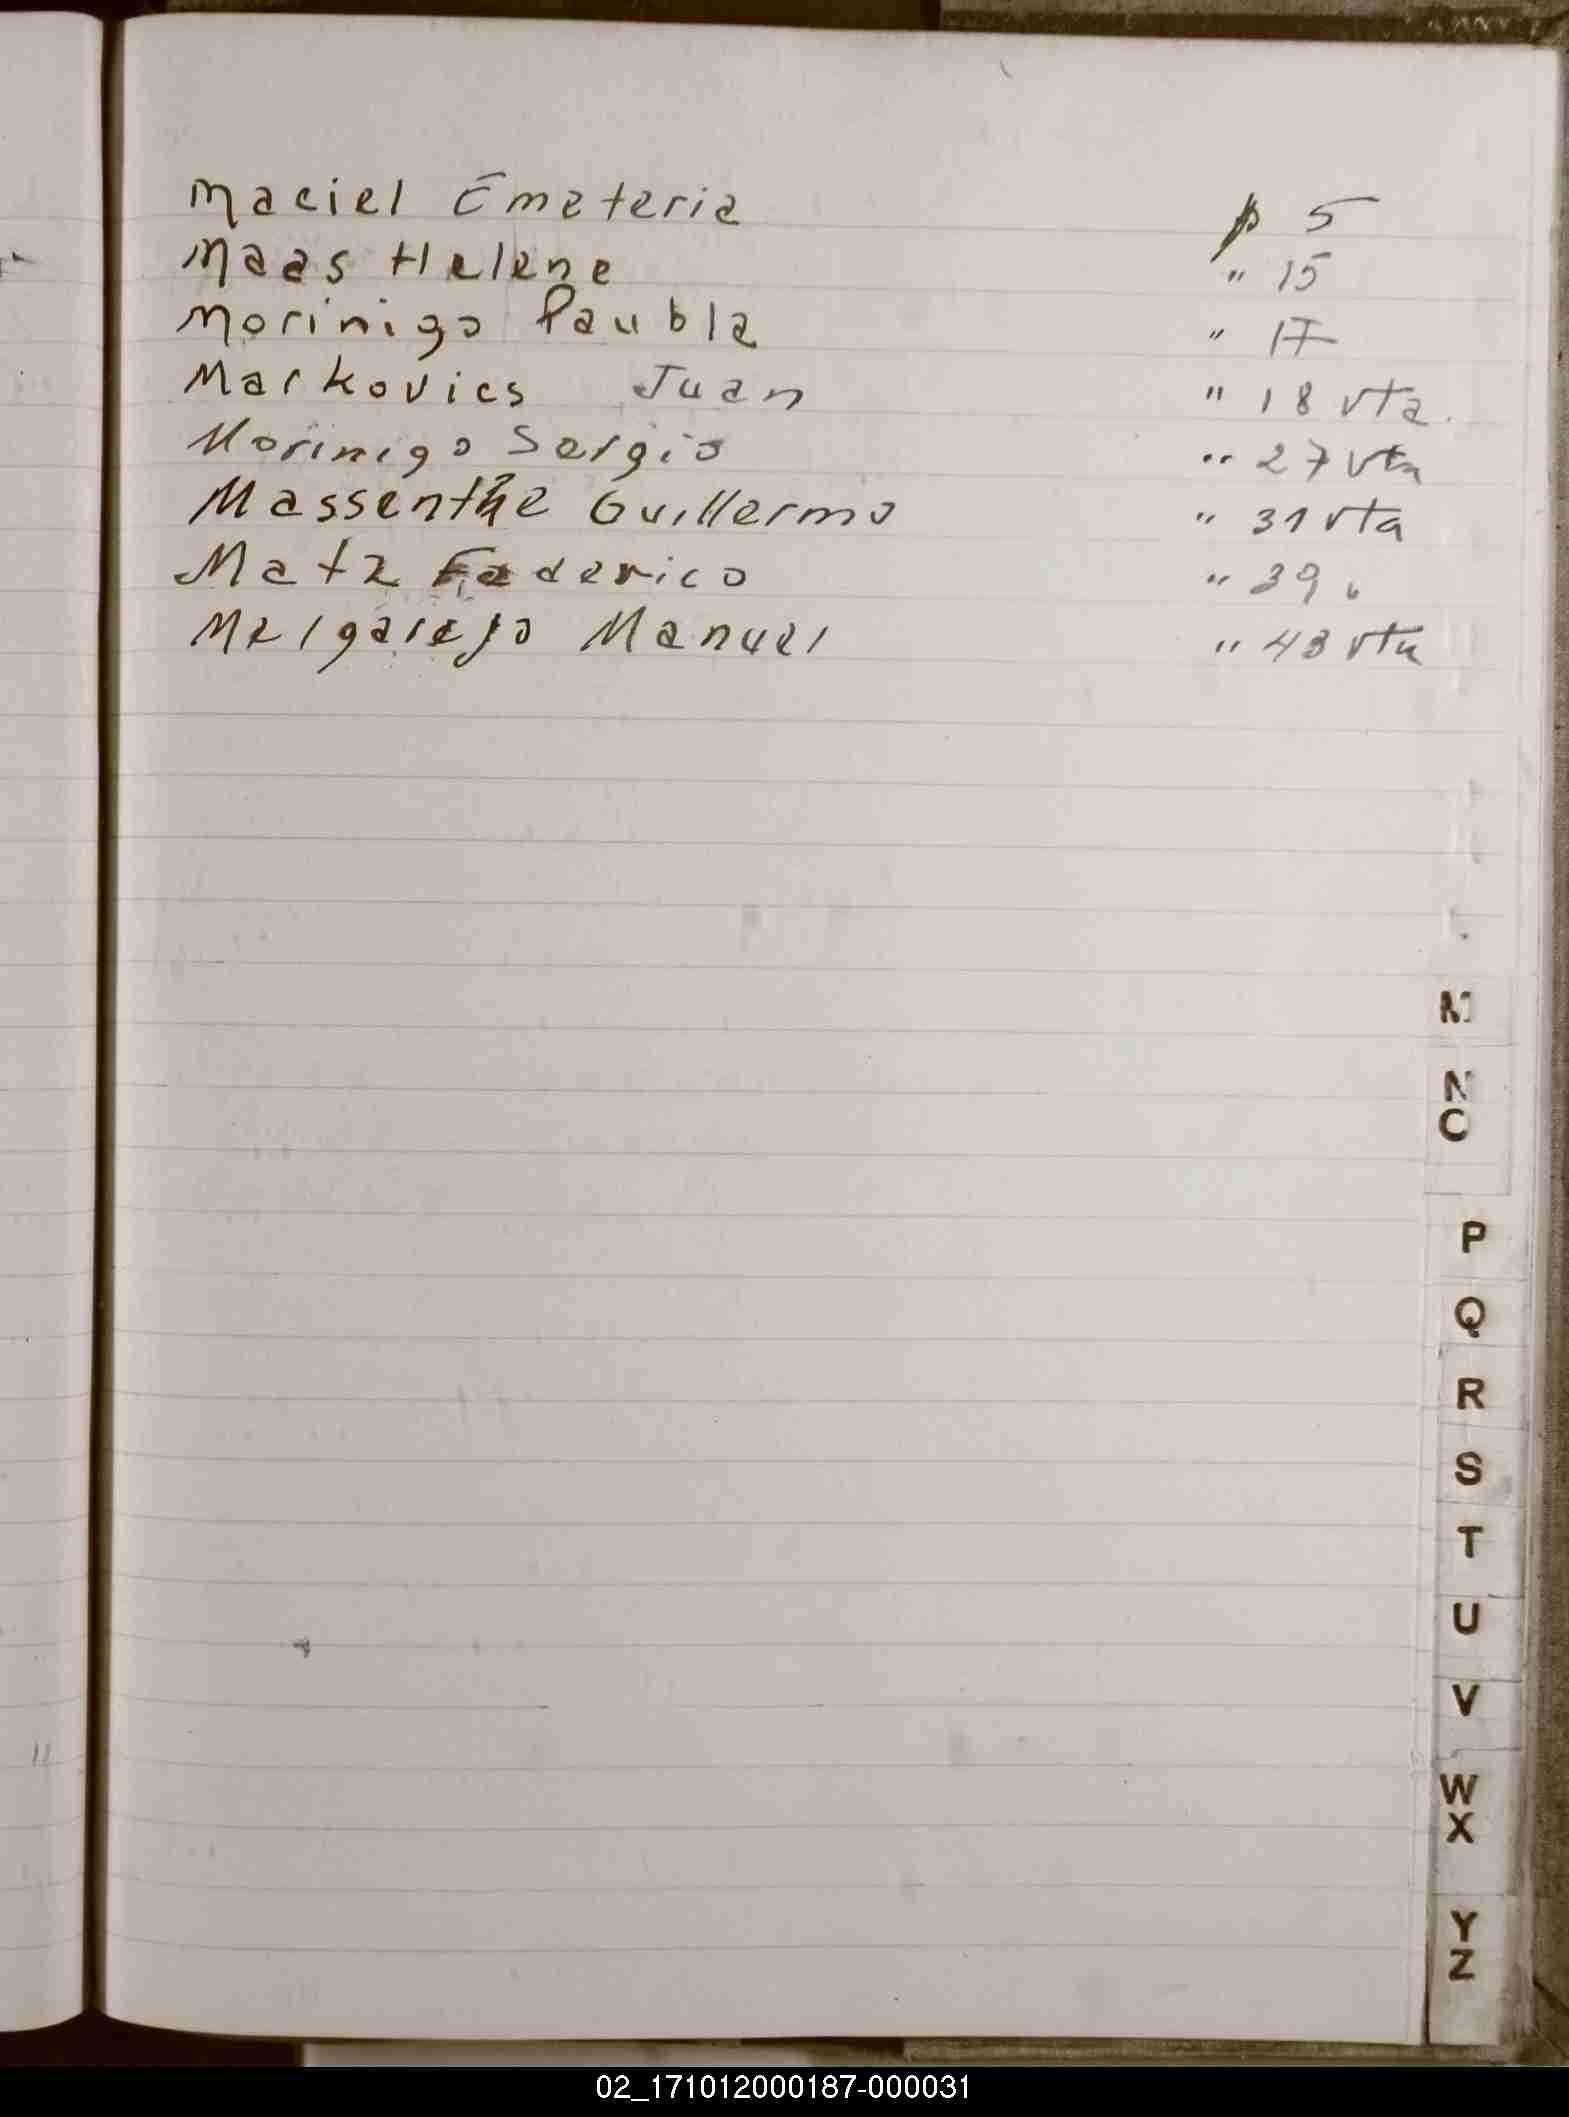 Maciel Emeteria p 5
Maas Helene " 15
Morinigo Paubla " 17
Markovics Juan " 18 vta.
Morinigo Sergio " 27 vta
Massenthe Guillermo " 31 vta
Matz Federico " 39 "
Melgarejo Manuel " 43 vta
M
N
O
P
Q
R
S
T
U
V
W
X
Y
Z
02_171012000187-000031